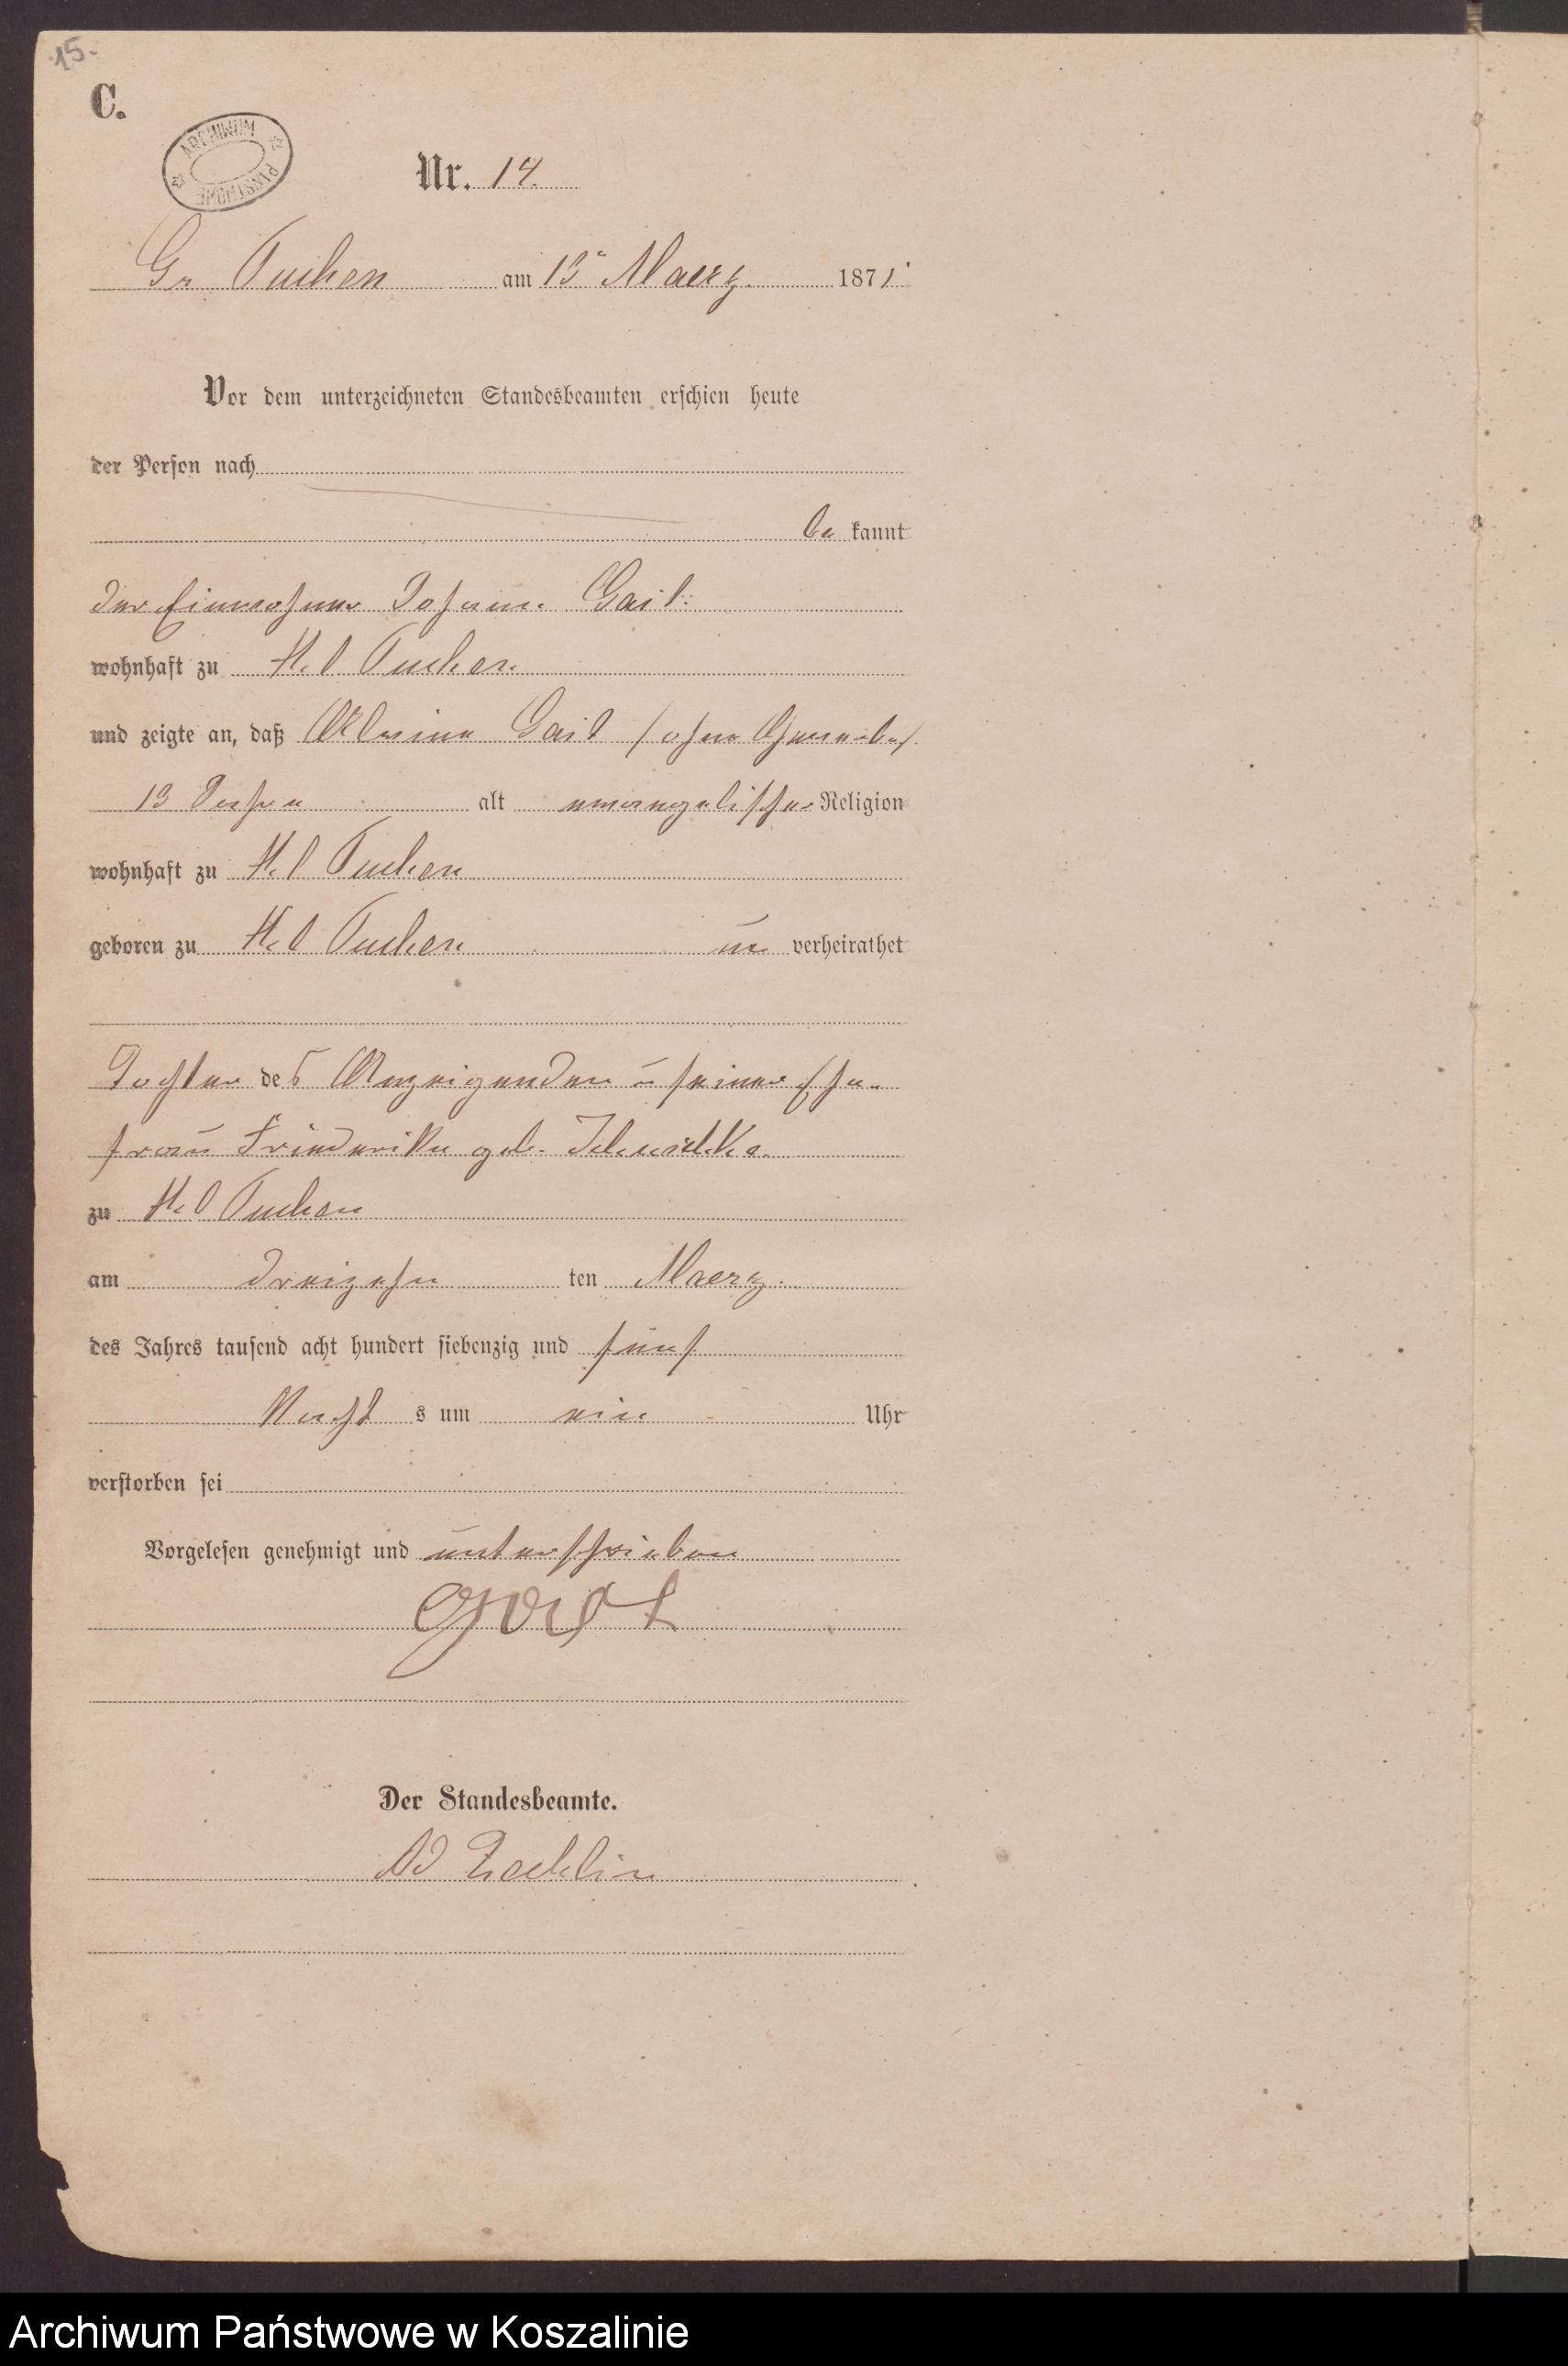 15.
C.
ARCHIWUM PAŃSTWOWE
Nr. 14.
Gr Tuchen am 13 Maerz 1875
Vor dem unterzeichneten Standesbeamten erschien heute
der Person nach
be kannt
der Einwohner Johann Gast
wohnhaft zu Kl Tuchen
und zeigte an, daß Albertine Gast (ohne Gewerbe)
13 Jahre alt evangelischer Religion
wohnhaft zu Kl Tuchen
geboren zu Kl Tuchen un verheirathet
Tochter des Anzeigenden u seiner Ehe-
frau Friederike geb.
zu Kl Tuchen
am dreizehn ten Maerz
des Jahres tausend acht hundert siebenzig und fünf
Nacht s um ein Uhr
verstorben sei
Vorgelesen genehmigt und unterschrieben
Der Standesbeamte.
Archiwum Państwowe w Koszalinie